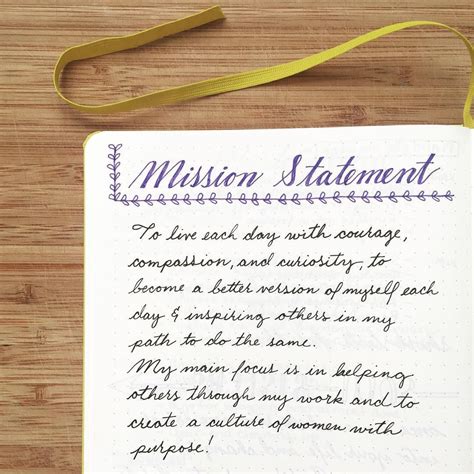 Mission Statement
To live each day with courage,
compassion, and curiosity, to
become a better version of myself each
day & inspiring others in my
path to do the same.
My main focus is in helping
others through my work and to
create a culture of women with
purpose!